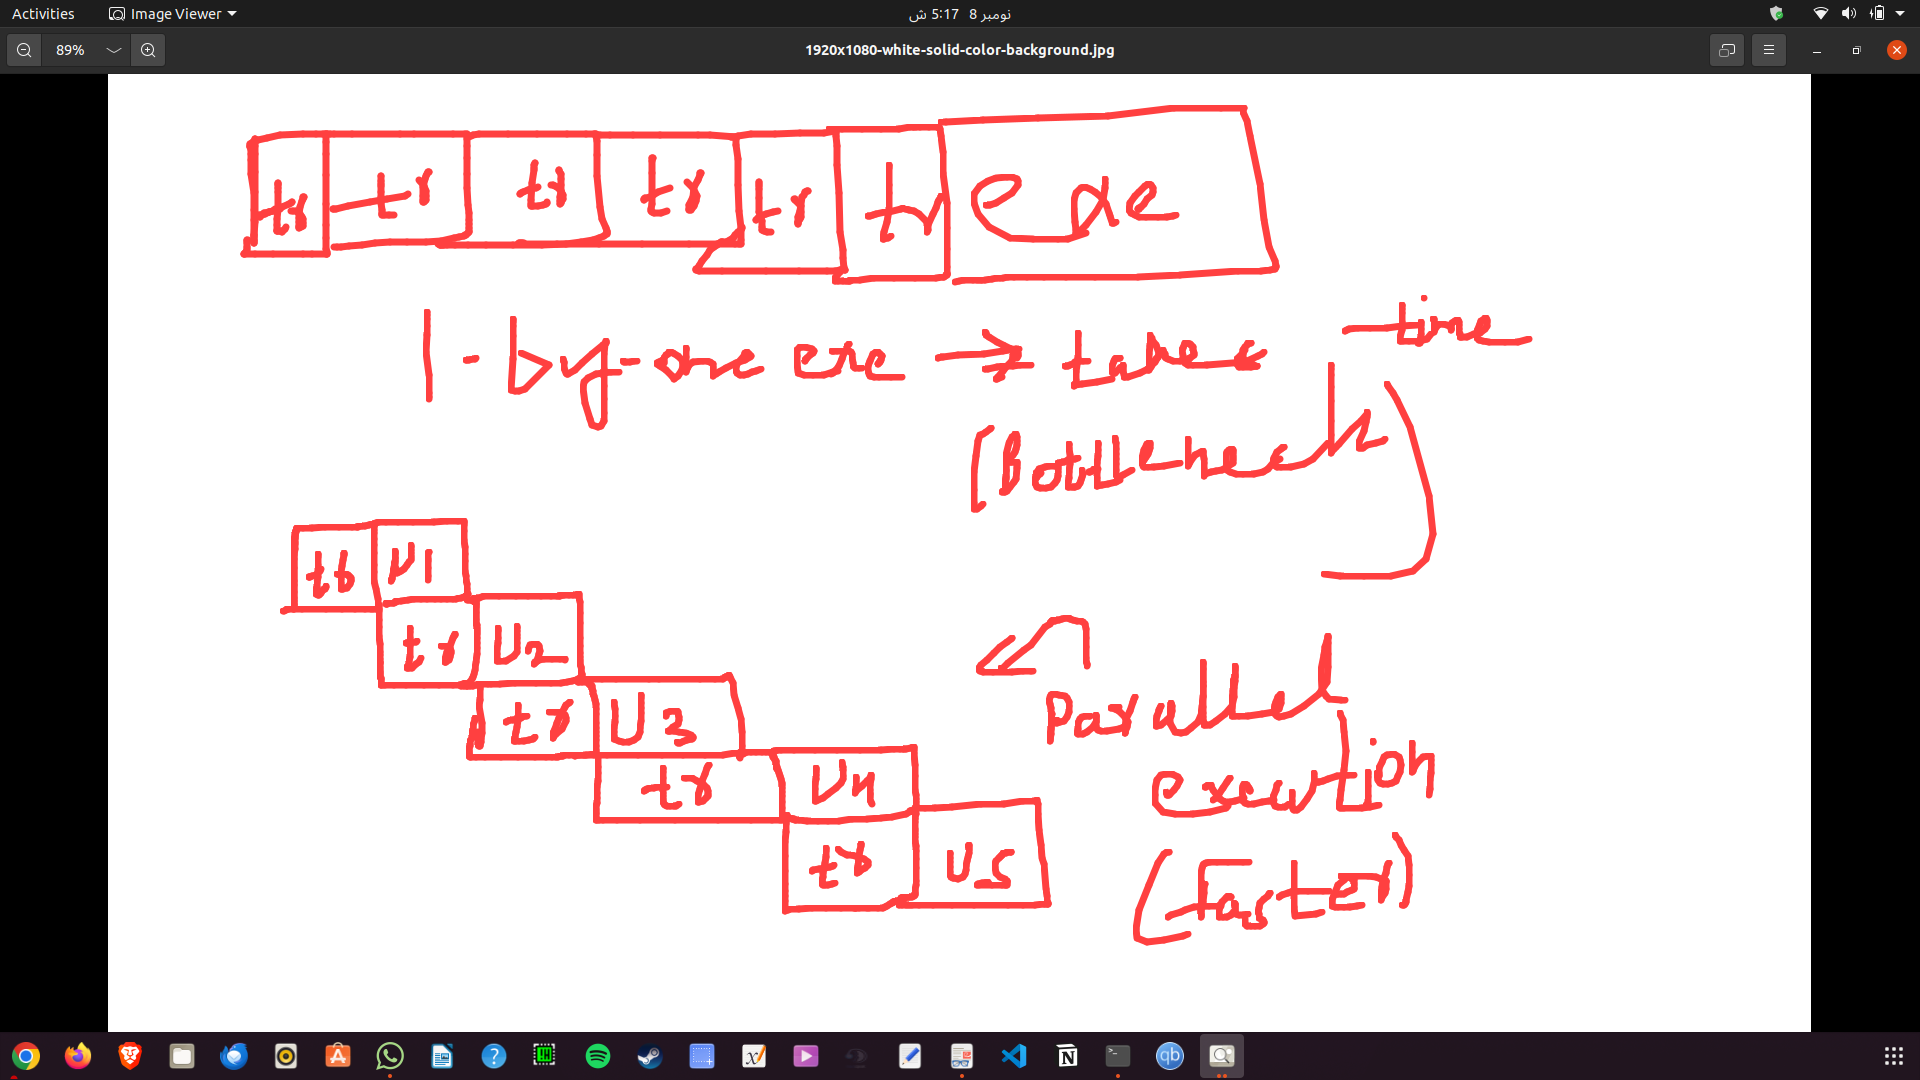 Activities Image Viewer نومبر 8 5:17 ش
89% 1920x1080-white-solid-color-background.jpg
tr tr tr tr tr tr exe
1-by-one exe → takes time
(Bottleneck)
tr U1
tr U2
tr U3
tr U4
tr U5
Parallel
execution
(Faster)